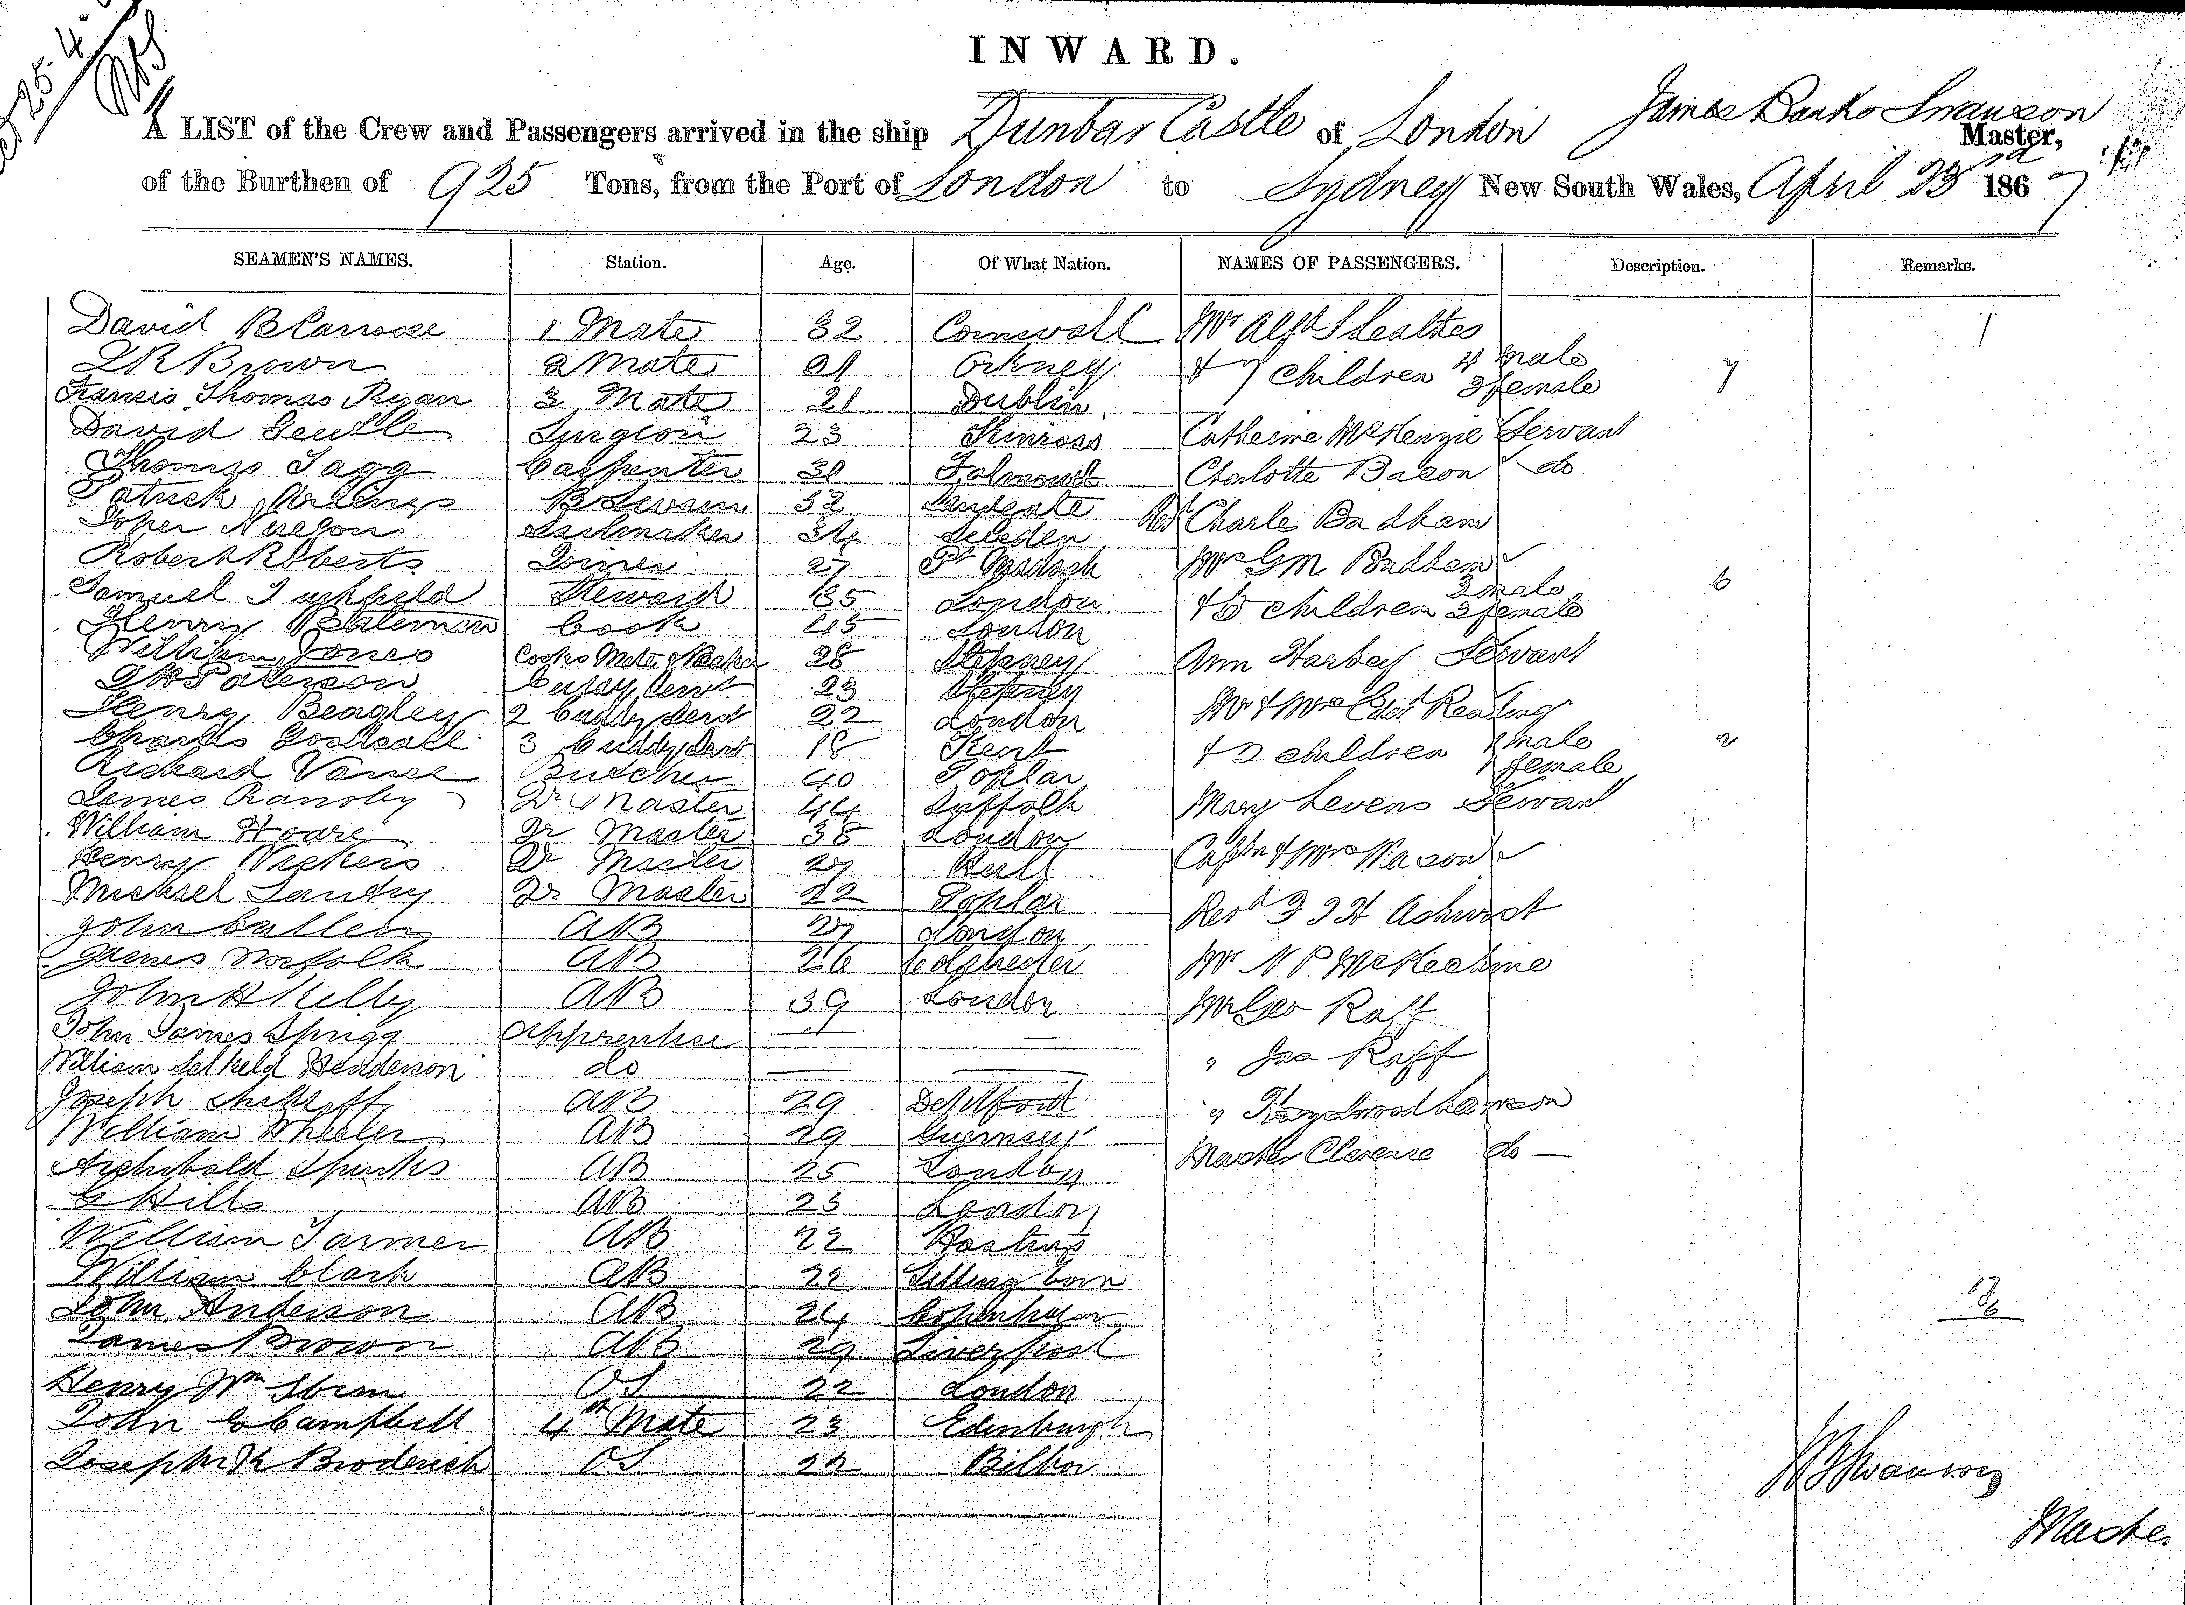 INWARD.
A LIST of the Crew and Passengers arrived in the ship Dunbar Castle of London James Banks Swanson Master,
of the Burthen of 925 Tons, from the Port of London to Sydney New South Wales, April 23rd 1867
SEAMEN'S NAMES. Station. Age. Of What Nation. NAMES OF PASSENGERS. Description. Remarks.
David 1 Mate 32 Cornwall Mr Alfd 1
Brown 2 Mate 21 Orkney & 7 children 4 male 7
3 female
Francis Thomas Ryan 3 Mate 21 Dublin
David Surgeon 23 Kinross Catherine McKenzie Servant
Thomas Tagg Carpenter 31 Falmouth Charlotte Bacon do
Patrick BSwain 32 Revd Charles Badham
Sailmaker 34 Mrs G M Badham
Robert Roberts Joiner 27
Samuel Steward 35 London & 5 children 3 male 6
2 female
Henry Bateman Cook 45 London
William Jones Cooks Mate & Baker 28 Stepney Ann Harbey Servant
Paterson Cuddy Servt 23 Stepney
Henry Beagley 2 Cuddy Servt 22 London Mr & Mrs Edwd Reading
Charles 3 Cuddy Servt 18 Kent & 2 children 1 male 2
1 female
Richard Vance Butcher 40 Poplar
James Ransby Qr Master 44 Suffolk Mary Levens Servant
William Hoare Qr Master 38 London
Henry Vickers Qr Master 27 Hull Captn & Mrs Wason
Michael Landry Qr Master 22 Poplar Revd Ashwist
John Cullen AB 27 London
James Norfolk AB 26 Colchester Mr N P McKechnie
John H Kelly AB 39 London Mr Geo Raff
John James Sprigg Apprentice — —
William Selkeld Henderson do — — " Jas Raff
Joseph AB 29 Deptford " Lawson
William Wheeler AB 29 Guernsey
Archibald Spinks AB 25 London Master Clarence do —
G Hills AB 23 London
William Farmer AB 22 Hastings
William Clark AB 22 Sittingborn
John Anderson AB 24 Copenhagen
James Brown AB 29 Liverpool
Henry Wm OS 22 London
John G Campbell 4th Mate 23 Edinburgh
Joseph Broderick OS 22 Bilboa
J B Swanson
Master